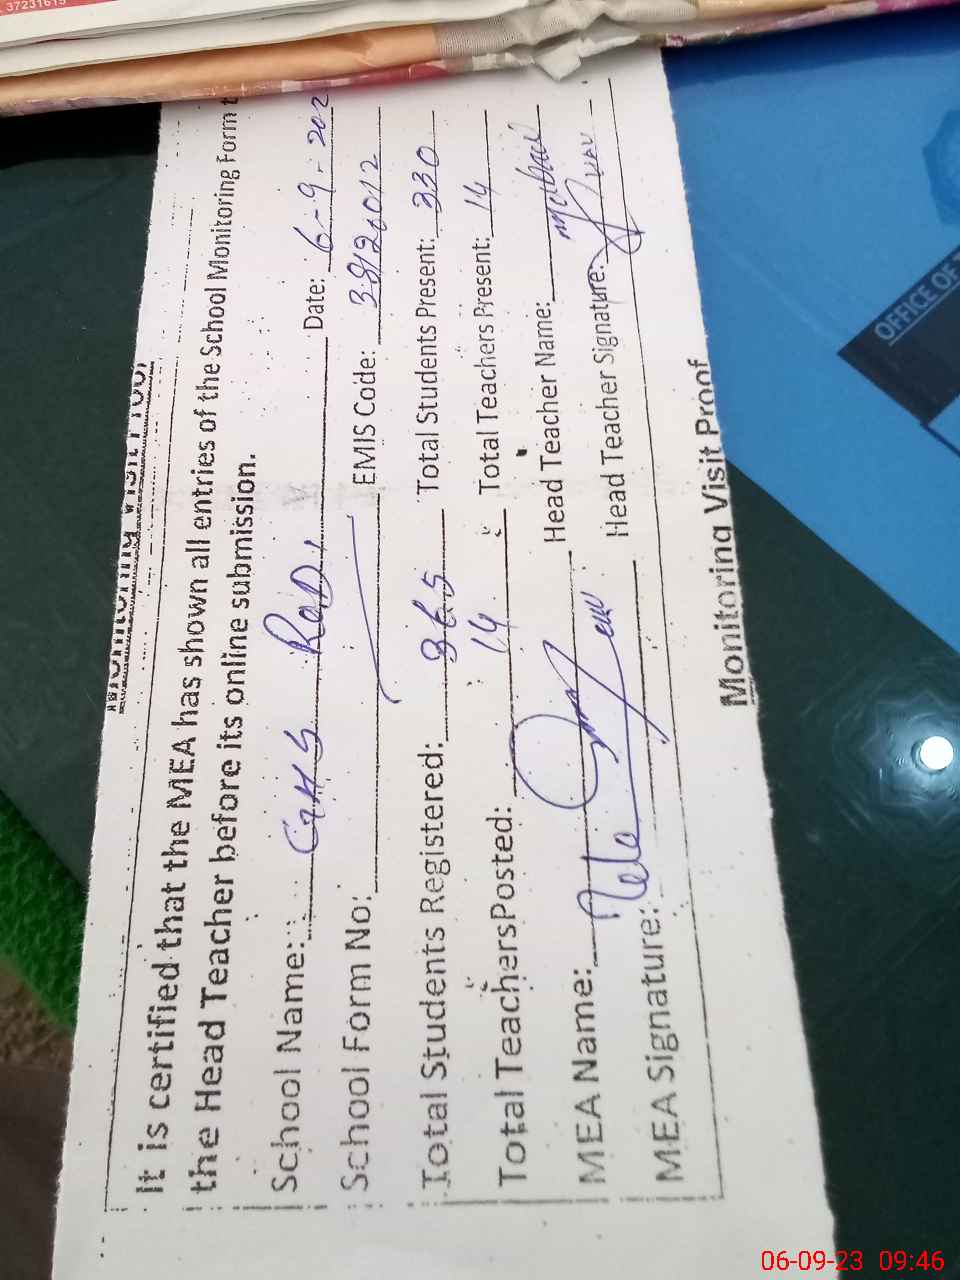 37231615
Monitoring Visit Proof
It is certified that the MEA has shown all entries of the School Monitoring Form t
the Head Teacher before its online submission.
School Name: GHS Date: 6-9-202
School Form No: EMIS Code:
Total Students Registered: 365 Total Students Present: 330
Total TeachersPosted: 14 Total Teachers Present: 14
MEA Name: Head Teacher Name:
MEA Signature: Head Teacher Signature:
Monitoring Visit Proof
OFFICE OF
06-09-23 09:46